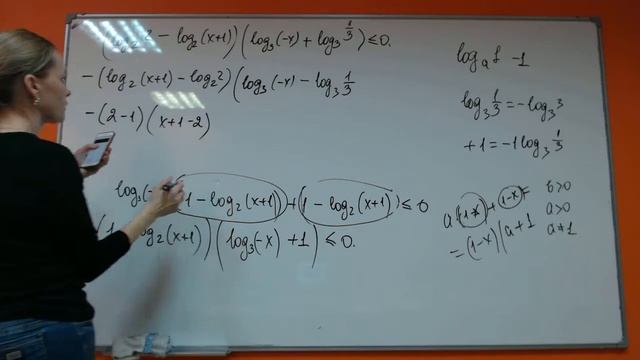 (log₂2 - log₂(x+1))(log₃(-x) + log₃ 1/3) ≤ 0.
-(log₂(x+1) - log₂2)(log₃(-x) - log₃ 1/3
-(2-1)(x+1-2)
log₃(- (1 - log₂(x+1)) + (1 - log₂(x+1)) ≤ 0
log₂(x+1))(log₃(-x) + 1) ≤ 0.
logₐ1 -1
log₃ 1/3 = -log₃3
+1 = -1log₃ 1/3
a(1-x) + (1-x) =
= (1-x)(a+1
b>0
a>0
a≠1